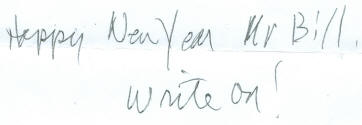 Happy New Year Mr Bill.
Write on!